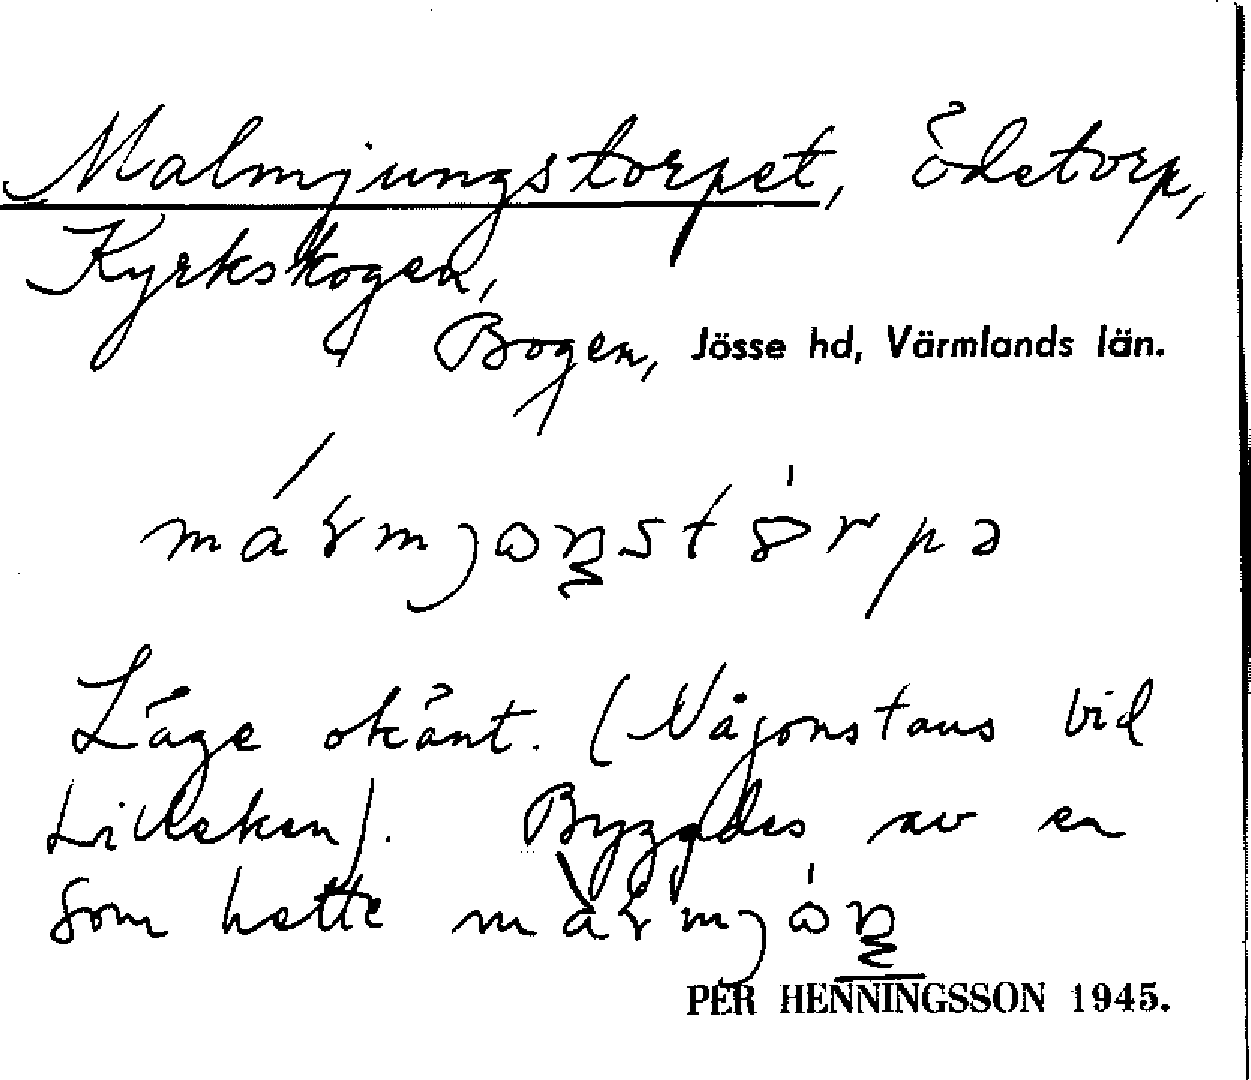 Malmjungstorpet, Ödetorp,
Kyrkskogen,
Bogen, Jösse hd, Värmlands län.
Läge okänt. (Någonstans vid
Lilleken). Byggdes av en
som hette
PER HENNINGSSON 1945.